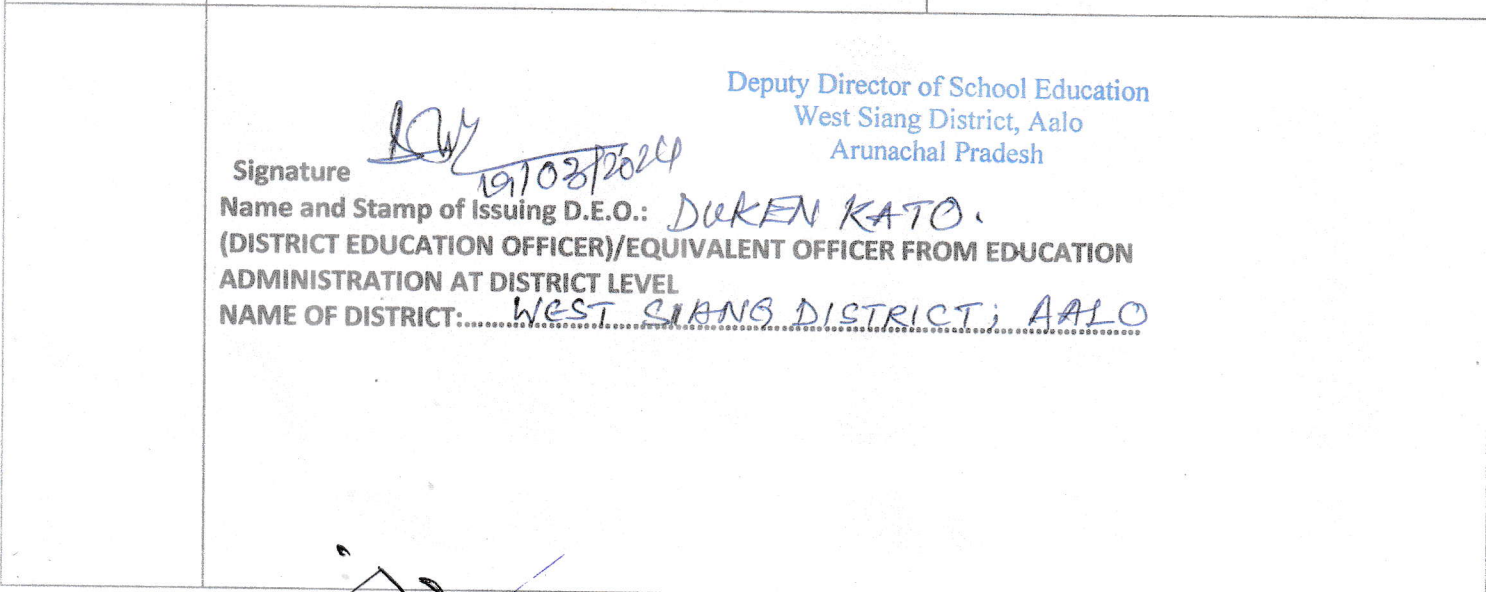 Deputy Director of School Education
West Siang District, Aalo
Arunachal Pradesh
Signature
19/03/2024
Name and Stamp of Issuing D.E.O.: DUKEN KATO.
(DISTRICT EDUCATION OFFICER)/EQUIVALENT OFFICER FROM EDUCATION
ADMINISTRATION AT DISTRICT LEVEL
NAME OF DISTRICT:..... WEST SIANG DISTRICT; AALO